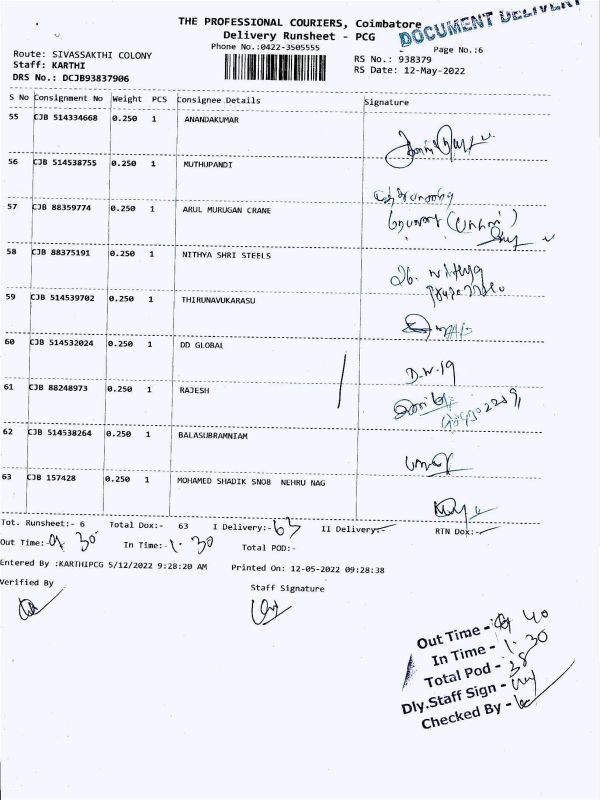 THE PROFESSIONAL COURIERS, Coimbatore
DOCUMENT DELIVERY
Delivery Runsheet - PCG
Phone No.:0422-3505555
Page No.:6
Route: SIVASSAKTHI COLONY
RS No.: 938379
Staff: KARTHI
RS Date: 12-May-2022
DRS No.: DCJB93837906
S No Consignment No Weight PCS Consignee Details Signature
55 CJB 514334668 0.250 1 ANANDAKUMAR
56 CJB 514538755 0.250 1 MUTHUPANDI
57 CJB 88359774 0.250 1 ARUL MURUGAN CRANE
58 CJB 88375191 0.250 1 NITHYA SHRI STEELS
59 CJB 514539702 0.250 1 THIRUNAVUKARASU
60 CJB 514532024 0.250 1 DD GLOBAL
D.W.19
61 CJB 88248973 0.250 1 RAJESH
62 CJB 514538264 0.250 1 BALASUBRAMNIAM
63 CJB 157428 0.250 1 MOHAMED SHADIK SNO8 NEHRU NAG
Tot. Runsheet:- 6 Total Dox:- 63 I Delivery:- 63 II Delivery:- RTN Dox:-
Out Time:- 9 30 In Time:- 1.30 Total POD:-
Entered By :KARTHIPCG 5/12/2022 9:28:20 AM Printed On: 12-05-2022 09:28:38
Verified By Staff Signature
Out Time - 40
In Time - 1.30
Total Pod - 38
Dly.Staff Sign -
Checked By -